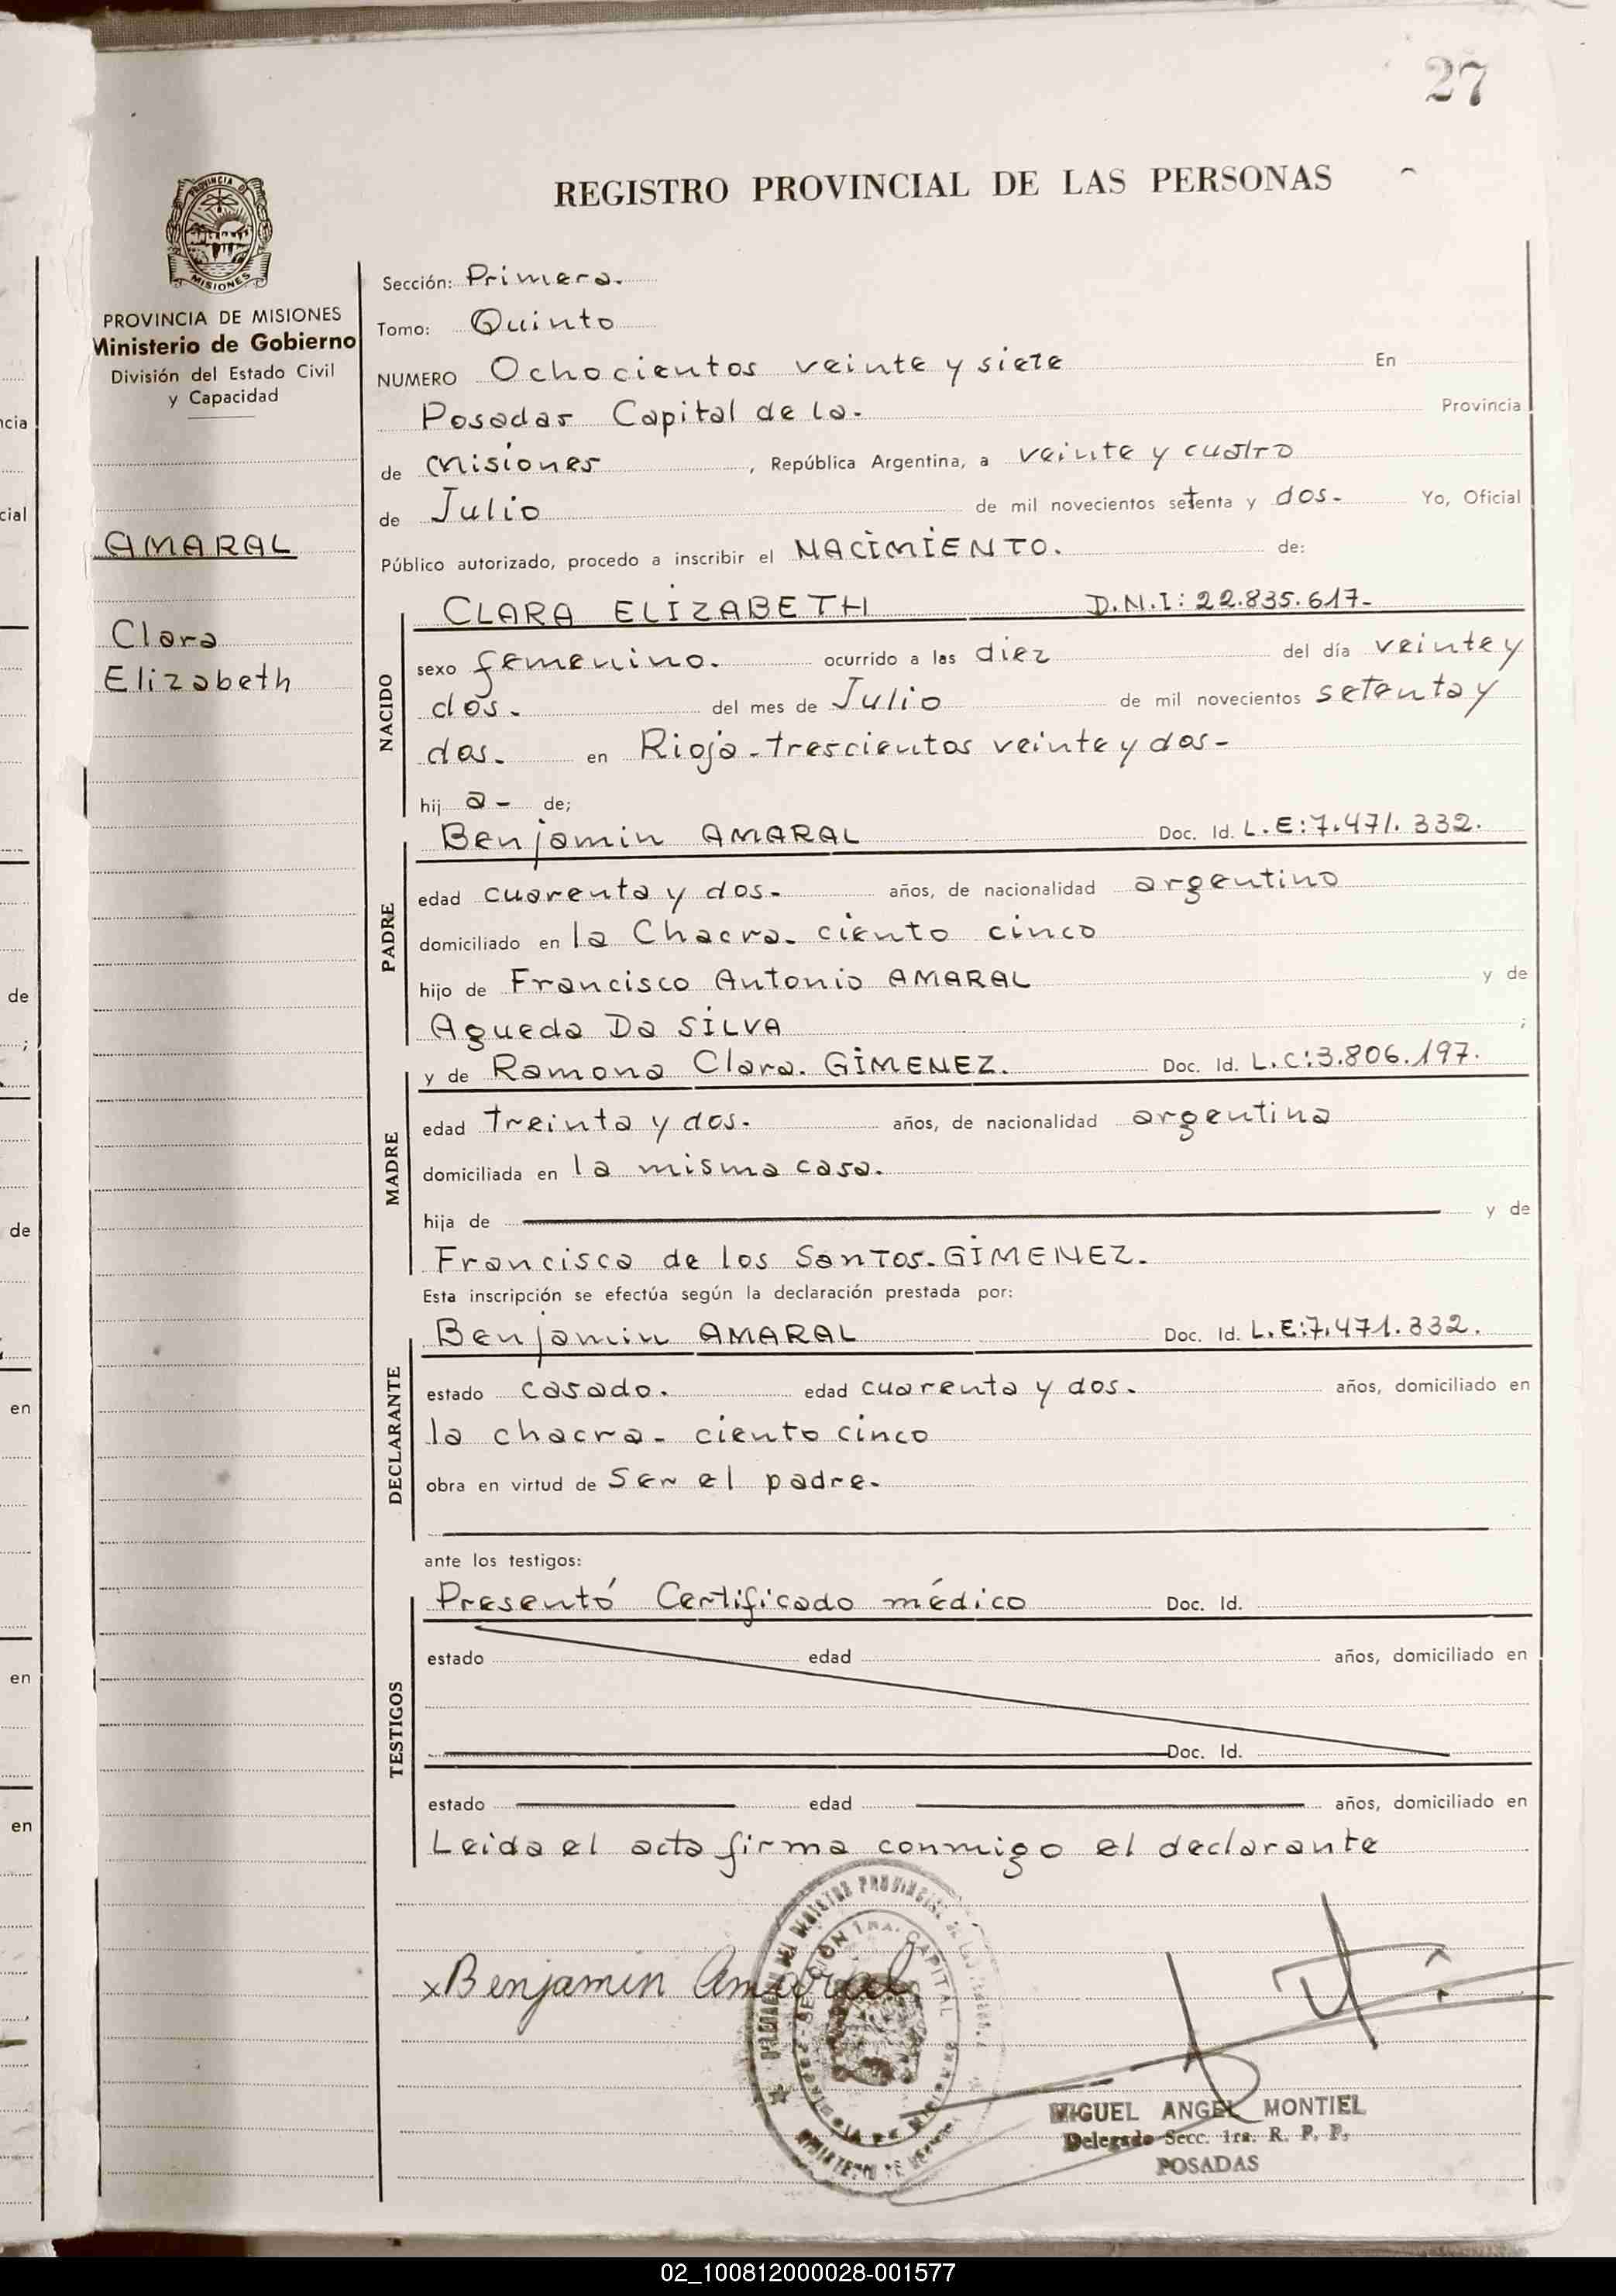 27
REGISTRO PROVINCIAL DE LAS PERSONAS
PROVINCIA DE
MISIONES
PROVINCIA DE MISIONES
Ministerio de Gobierno
División del Estado Civil
y Capacidad
AMARAL
Clara
Elizabeth
Sección: Primera.
Tomo: Quinto
NUMERO Ochocientos veinte y siete En
Posadas Capital de la. Provincia
de Misiones, República Argentina, a veinte y cuatro
de Julio de mil novecientos setenta y dos. Yo, Oficial
Público autorizado, procedo a inscribir el NACIMIENTO. de:
NACIDO
CLARA ELIZABETH D.N.I: 22.835.617-
sexo femenino. ocurrido a las diez del día veinte y
dos. del mes de Julio de mil novecientos setenta y
dos. en Rioja-trescientos veinte y dos-
hij a- de;
PADRE
Benjamin AMARAL Doc. Id. L.E:7.471.332.
edad cuarenta y dos- años, de nacionalidad argentino
domiciliado en la Chacra. ciento cinco
hijo de Francisco Antonio AMARAL y de
Agueda Da SILVA ;
MADRE
y de Ramona Clara. GIMENEZ. Doc. Id. L.C:3.806.197.
edad treinta y dos. años, de nacionalidad argentina
domiciliada en la misma casa.
hija de y de
Francisca de los Santos. GIMENEZ.
Esta inscripción se efectúa según la declaración prestada por:
DECLARANTE
Benjamin AMARAL Doc. Id. L.E:7.471.332.
estado casado. edad cuarenta y dos. años, domiciliado en
la chacra- ciento cinco
obra en virtud de Ser el padre.
ante los testigos:
TESTIGOS
Presentó Certificado médico Doc. Id.
estado edad años, domiciliado en
Doc. Id.
estado edad años, domiciliado en
Leida el acta firma conmigo el declarante
x Benjamin Amaral
MIGUEL ANGEL MONTIEL
Delegado Secc. 1ra. R. P. P.
POSADAS
02_100812000028-001577